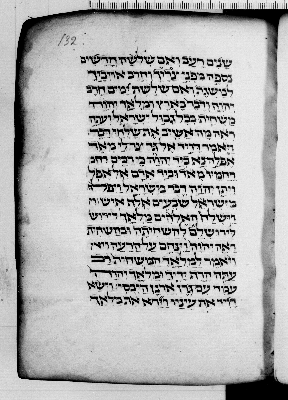 132
שנים רעב ואם שלשה חדשים
נספה מפני צריך וחרב אויבך
למשגת ואם שלשת ימים חרב
יהוה ודבר בארץ ומלאך יהוה
משחית בכל גבול ישראל ועתה
ראה מה אשיב את שלחי דבר
ויאמר דויד אל גד צר לי מאד
אפלה נא ביד יהוה כי רבים רחמ
רחמיו מאד וביד אדם אל אפל
ויתן יהוה דבר בישראל ויפל
מישראל שבעים אלף איש
וישלח האלהים מלאך
לירושלם להשחיתה ובהשחית
ראה יהוה וינחם על הרעה ויא
ויאמר למלאך המשחית רב
עתה הרף ידך ומלאך יהוה
עמד עם גרן ארנן היבוסי וישא
דויד את עיניו וירא את מלאך